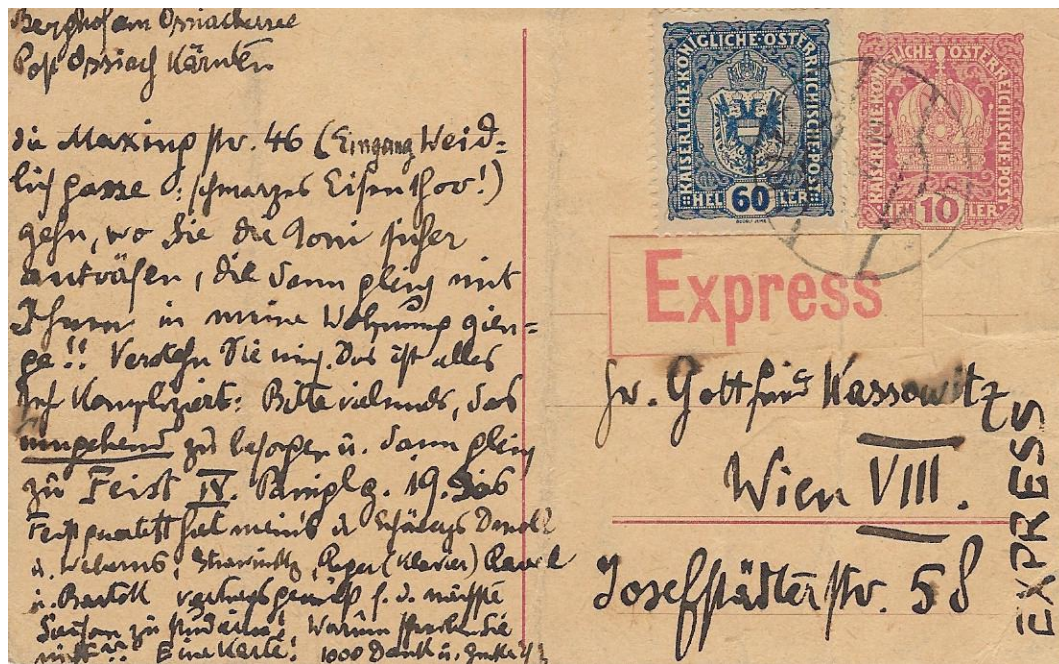 Berghof am Ossiachersee
Post Ossiach Kärnten
die Maxingstr. 46 (Eingang Weid=
lichgasse: schwarzes Eisenthor!)
gehn, wo Sie die Toni sicher
anträfen, die dann gleich mit
Ihnen in meine Wohnung gien=
ge!! Verstehn Sie mich. Das ist alles
sehr kompliziert: Bitte vielmals, das
umgehend zu besorgen u. dann gleich
zu Feist IV. 19. Das
Feistquartett hat meins u. Schönbergs Dmoll
u. Weberns, Strawinsky, Reger (Klavier) Ravel
u. Bartók vertragsgemäß f. d. nächste
Saison zu studieren! Warum schreiben Sie
nicht?? Eine Karte! 1000 Dank u.
KAISERLICHE·KÖNIGLICHE·ÖSTERREICHISCHE·POST
HELLER 60
KAISERLICHE KÖNIGLICHE ÖSTERREICHISCHE POST
HELLER 10
Express
Hr. Gottfried Kassowitz
Wien VIII.
Josefstädterstr. 58
EXPRESS